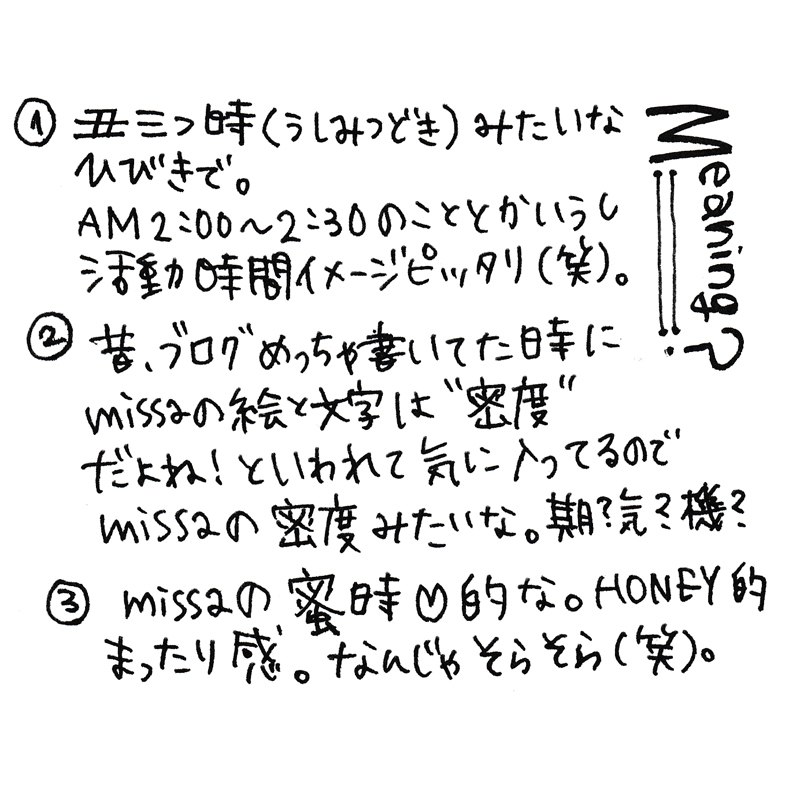 Meaning?
① 丑三つ時(うしみつどき)みたいな
ひびきで。
AM2:00〜2:30のこととかいうし
活動時間イメージピッタリ(笑)。
② 昔、ブログめっちゃ書いてた時に
missaの絵と文字は"密度"
だよね!といわれて気に入ってるので
missaの密度みたいな。期?気?機?
③ missaの蜜時♡的な。HONEY的
まったり感。なんじゃそらそら(笑)。